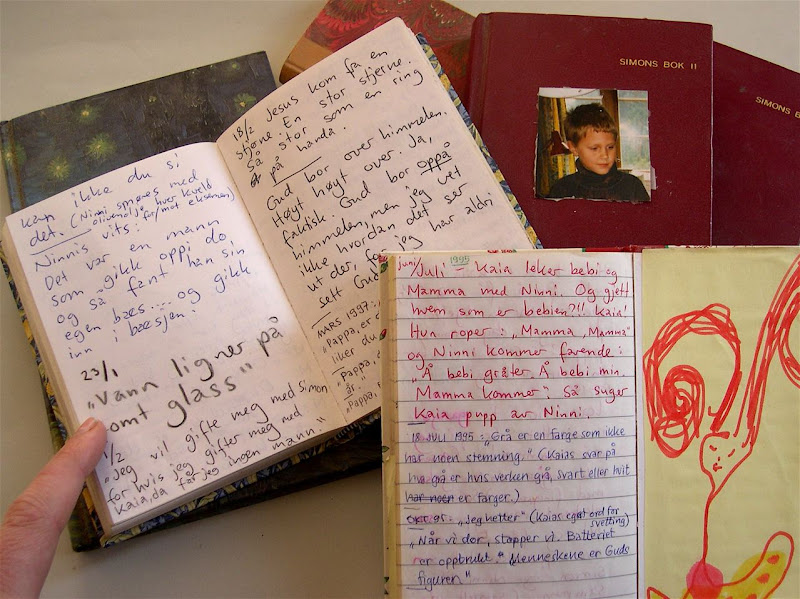 kan ikke du si
det. (Ninni smøres med
olivenolje hver kveld
for/mot eksemen)
Ninnis vits:
Det var en mann
som gikk oppi do
og så fant han sin
egen bæs.... og gikk
inn i bæsjen.
23/1
"Vann ligner på
tomt glass"
1/2
"Jeg vil gifte meg med Simon
for hvis jeg gifter meg med
Kaia, da får jeg ingen mann."
18/2 Jesus kom fra en
stjerne. En stor stjerne.
Så stor som en ring
på hånda.
Gud bor over himmelen.
Høyt høyt over. Ja,
faktisk. Gud bor oppå
himmelen, men jeg vet
ikke hvordan det ser
ut der, for jeg har aldri
sett Gud
MARS 1997:
"Pappa, er d
liker du
"Pappa,
år."
"Pappa,
SIMONS BOK II
SIMONS BOK
juni/Juli - 1995 Kaia leker bebi og
Mamma med Ninni. Og gjett
hvem som er bebien?!! Kaia!
Hun roper: "Mamma, Mamma"
og Ninni kommer farende:
"Å bebi gråter Å bebi min.
Mamma kommer". Så suger
Kaia pupp av Ninni.
18 JULI 1995: "Grå er en farge som ikke
har noen stemning." (Kaias svar på
hva grå er hvis verken grå, svart eller hvit
har noen er farger.)
Okt 95: "Jeg hetter" (Kaias eget ord for
svetting)
"Når vi dør, stopper vi. Batteriet
er oppbrukt." Menneskene er Guds
figurer."